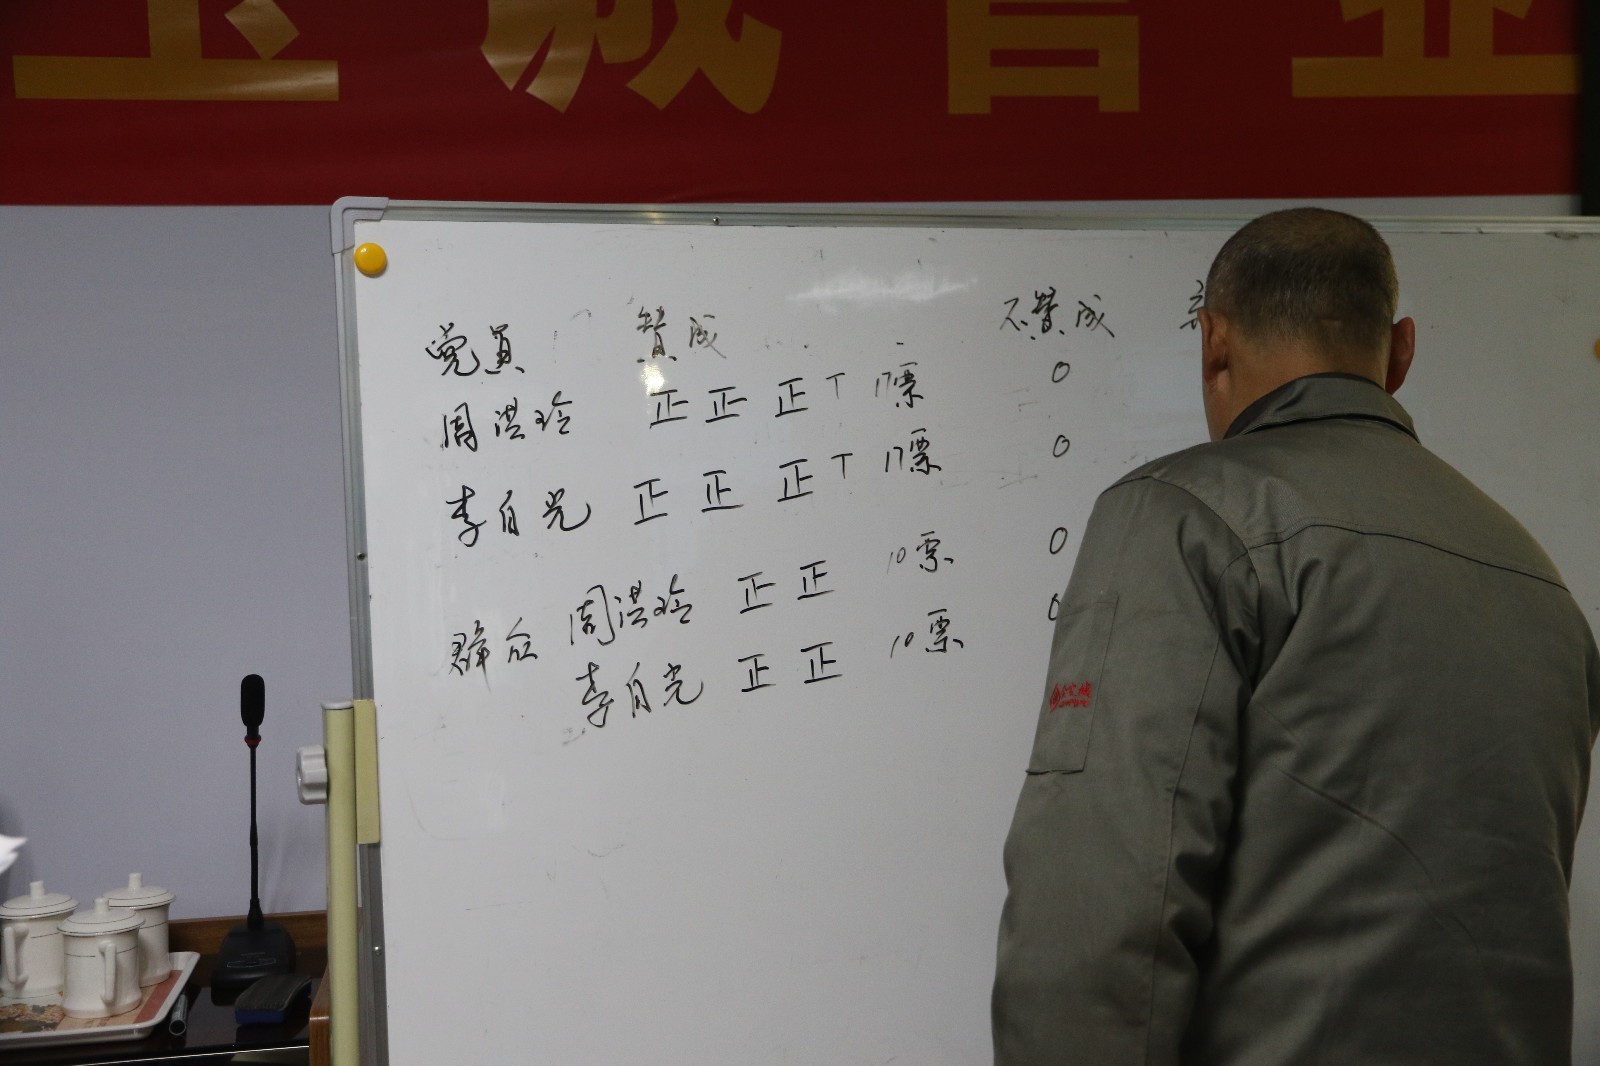 党员 赞成 不赞成
周洪玲 正 正 正 丅 17票 0
李自光 正 正 正 丅 17票 0
群众 周洪玲 正 正 10票 0
李自光 正 正 10票 0